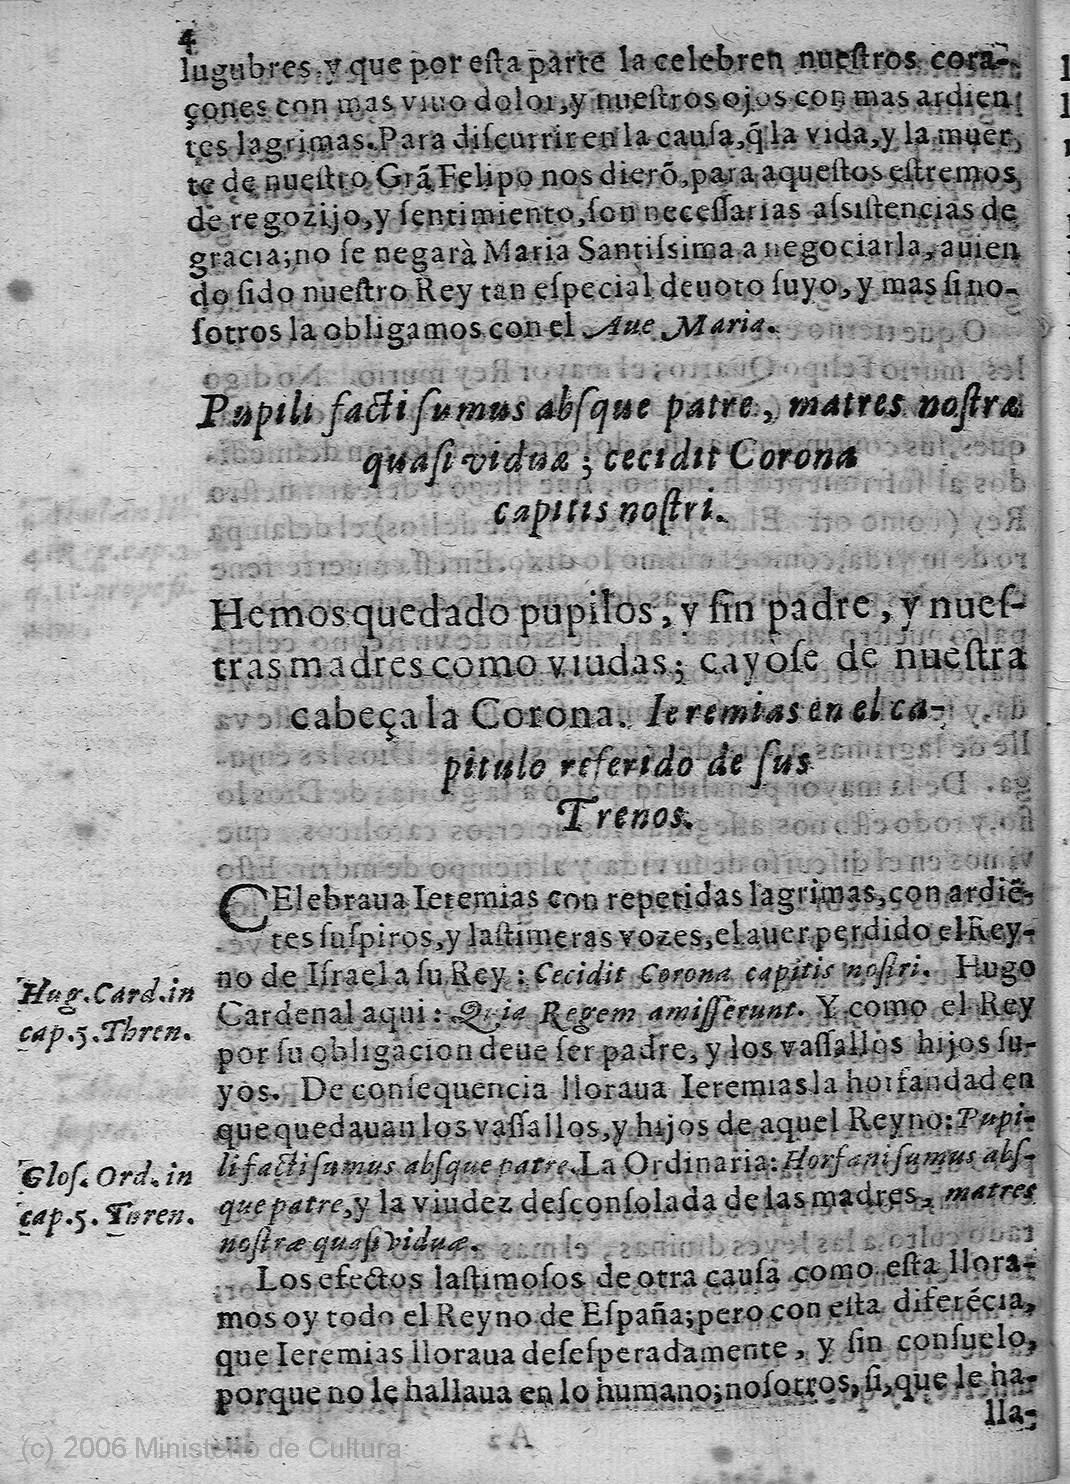 4
lugubres, y que por eſta parte la celebren nueſtros cora-
çones con mas viuo dolor, y nueſtros ojos con mas ardien
tes lagrimas. Para diſcurrir en la cauſa, q̃ la vida, y la muer
te de nueſtro Grã Felipo nos dierõ, para aqueſtos eſtremos
de regozijo, y ſentimiento, ſon neceſſarias aſsiſtencias de
gracia; no ſe negarà Maria Santiſsima a negociarla, auien
do ſido nueſtro Rey tan eſpecial deuoto ſuyo, y mas ſi no-
ſotros la obligamos con el Aue Maria.
Pupili facti ſumus abſque patre, matres noſtræ
quaſi viduæ; cecidit Corona
capitis noſtri.
Hemos quedado pupilos, y ſin padre, y nueſ-
tras madres como viudas; cayòſe de nueſtra
cabeça la Corona. Ieremias en el ca-
pitulo referido de ſus
Trenos.
CElebraua Ieremias con repetidas lagrimas, con ardiẽ-
tes ſuſpiros, y laſtimeras vozes, el auer perdido el Rey-
no de Iſrael a ſu Rey: Cecidit Corona capitis noſtri. Hugo
Hug. Card. in
cap. 5. Thren.
Cardenal aqui: Quia Regem amiſſerunt. Y como el Rey
por ſu obligacion deue ſer padre, y los vaſſallos hijos ſu-
yos. De conſequencia lloraua Ieremias la horfandad en
que quedauan los vaſſallos, y hijos de aquel Reyno: Pupi-
li facti ſumus abſque patre. La Ordinaria: Horfani ſumus abſ-
Gloſ. Ord. in
cap. 5. Thren.
que patre, y la viudez deſconſolada de las madres, matres
noſtræ quaſi viduæ.
Los efectos laſtimoſos de otra cauſa como eſta llora-
mos oy todo el Reyno de Eſpaña; pero con eſta diferẽcia,
que Ieremias lloraua deſeſperadamente, y ſin conſuelo,
porque no le hallaua en lo humano; noſotros, ſi, que le ha-
lla-
(c) 2006 Ministerio de Cultura